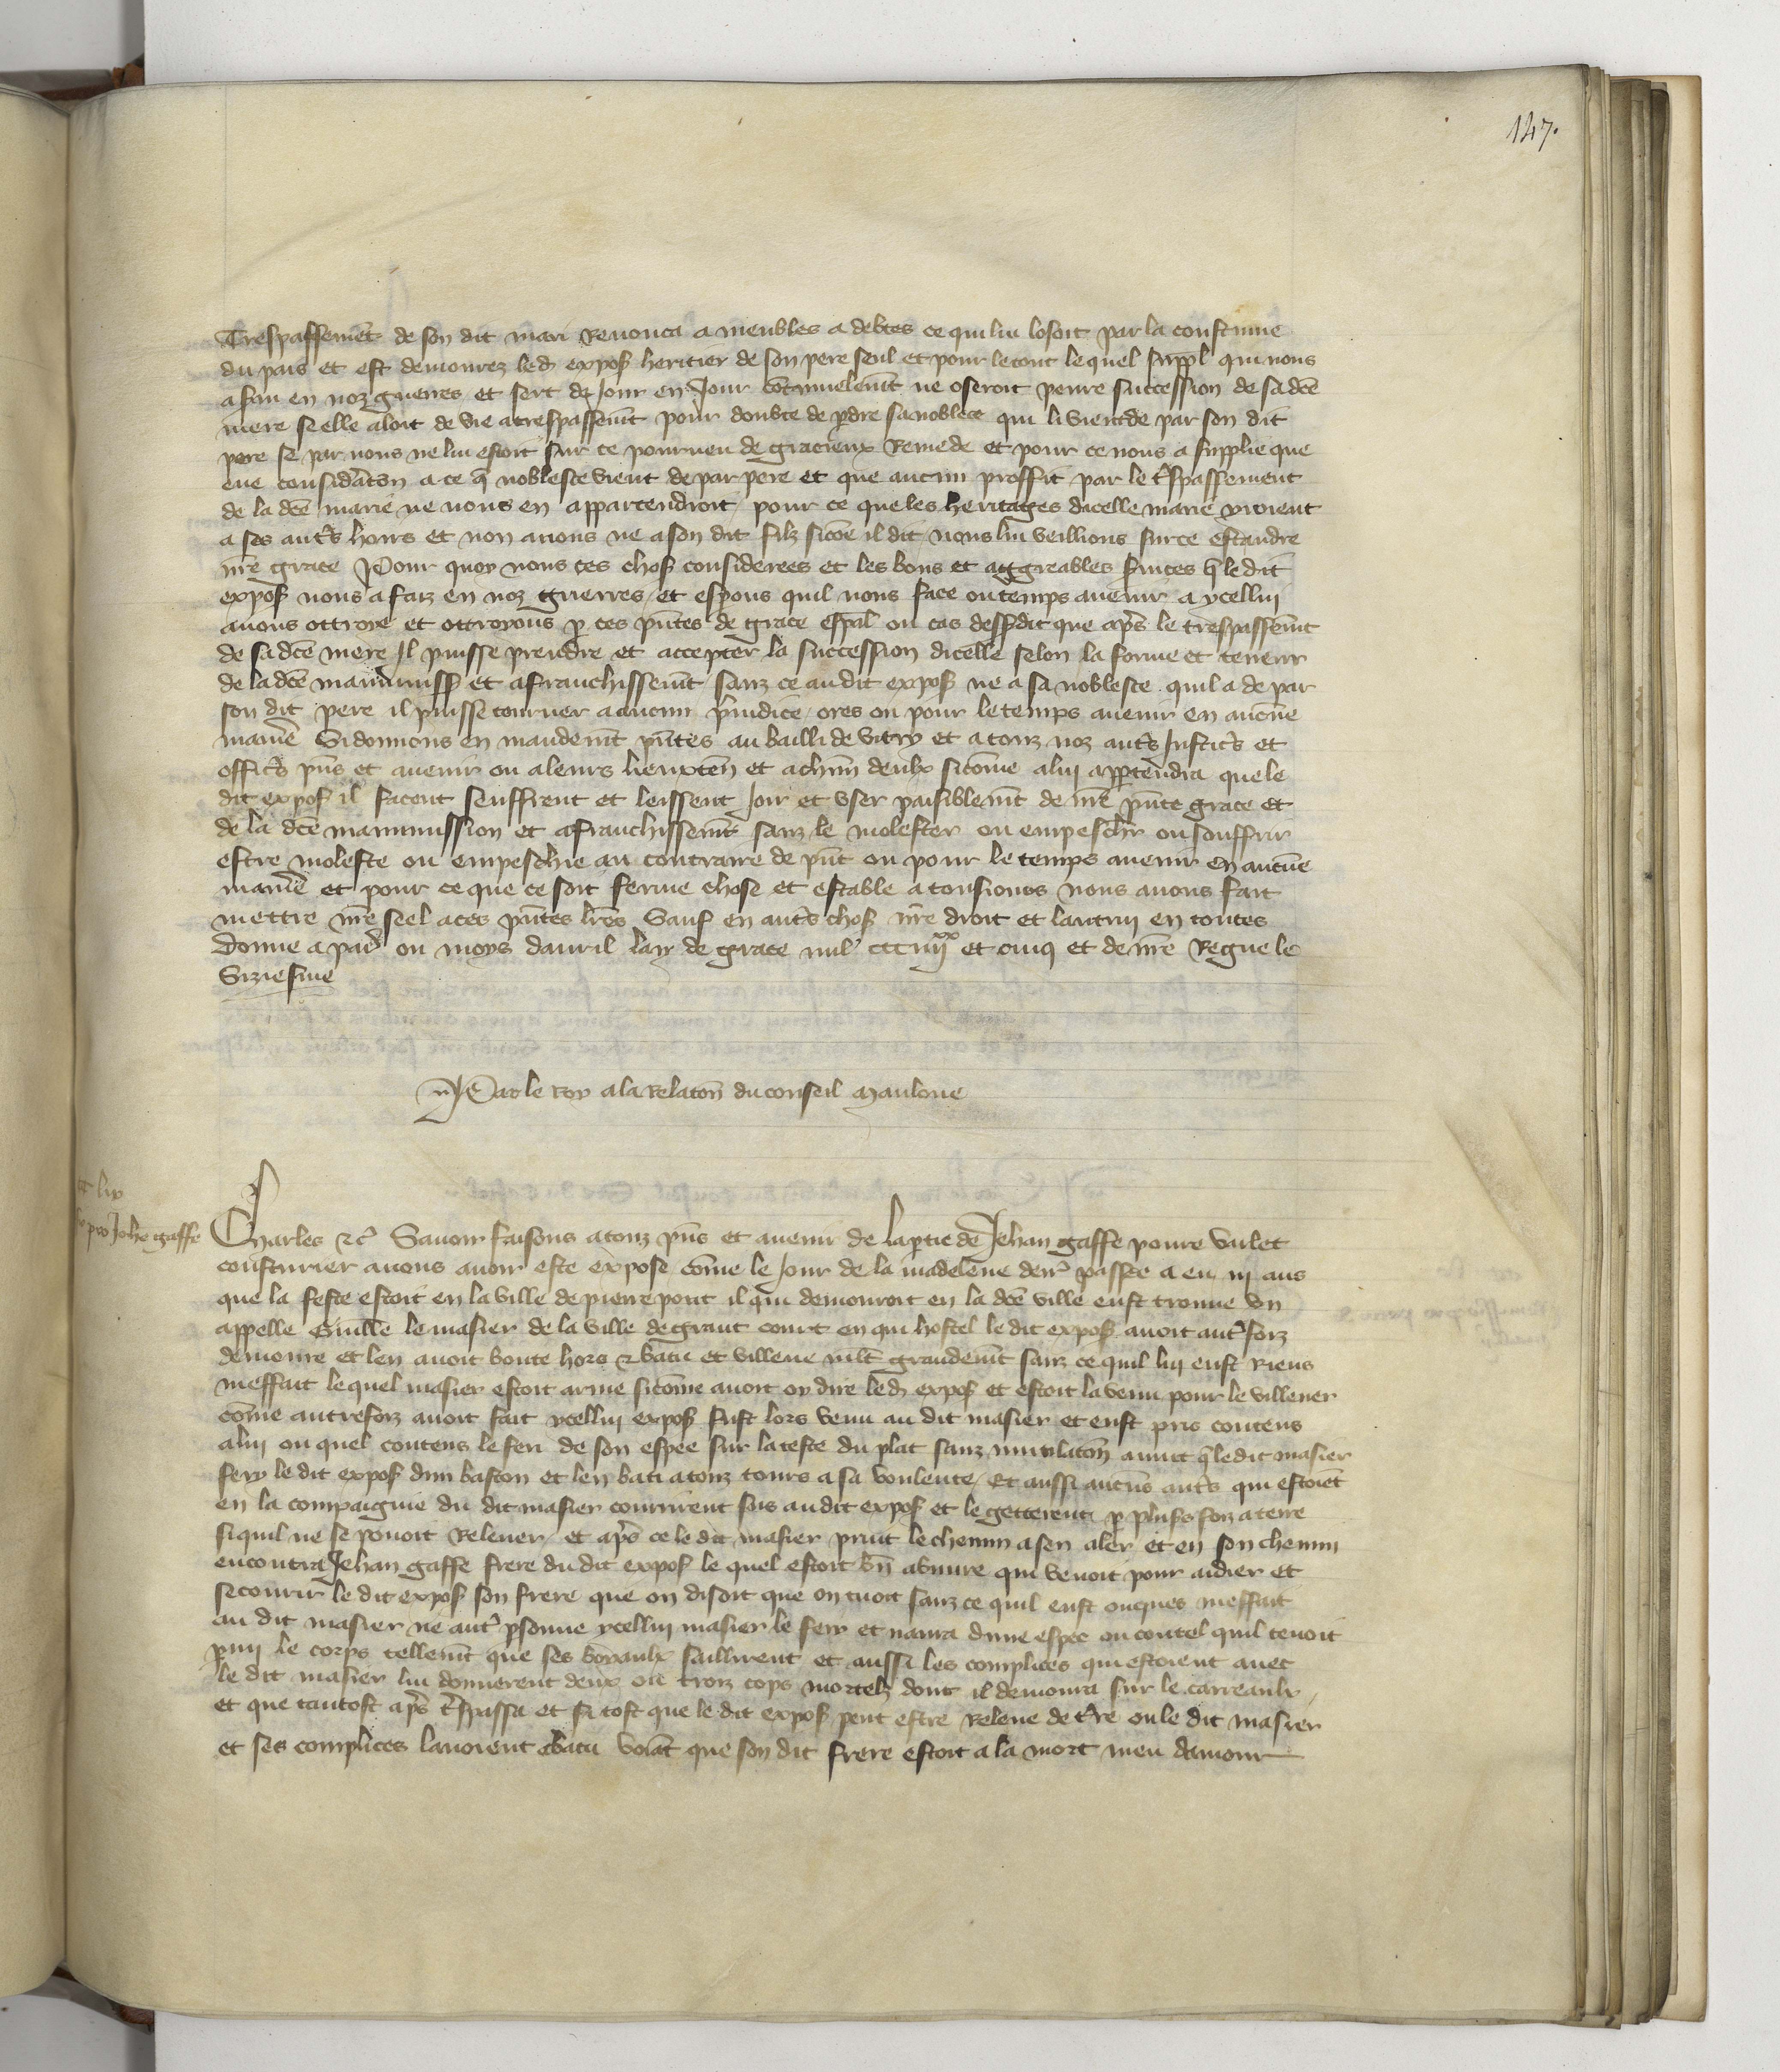 147.
Trespassemēt de son dit mari Renonca a meubles a debtes ce qui lui losoit par la coustume
du pais et est demourez led expos heritier de son pere seul et pour le tout le quel suppl qui nous
a servi en noz guerres et sert de Jour en Jour cōtinuelemēt ne oseroit penre succession de sa dcē
mere se elle aloit de vie a trespassemēt pour doubte de pdre sa noblece qui li vient de par son dit
pere se par nous ne lui estoit sur ce pourveu de gracieux Remede et pour ce nous a supplie que
eue considātōn a ce q̄ noblesce vient de par pere et que aucun proffit par le t̄spassement
de la dcē marie ne nous en appartendroit pour ce que les heritages dicelle marie vroient
a ses autr̄s hoirs et non a nous ne a son dit filz sicōe il dit nous lui veillions sur ce estandre
nr̄e grace Pour quoy nous ces chos considerees et les bons et aggreables s̄vices q̄ le dit
expos nous a faiz en noz guerres et esp̄ons quil nous face ou temps avenir a ycellui
avons ottroye et ottroyons p̄ ces pn̄tes de grace esp̄al ou cas dess̄dit que ap̄s le trespassemēt
de sa dcē mere Il puisse prendre et accepter la succession dicelle selon la forme et teneur
de la dcē manumiss̄ et afranchissemēt sanz ce au dit expos ne a sa noblesce quil a de par
son dit pere il puisse tourner a aucun p̄iudice ores ou pour le temps avenir en aucūe
maniē Si donnons en mandemēt pn̄tes au bailli de vitry et a touz noz autr̄s Justic̄s et
offic̄s pn̄s et avenir ou a leurs lieuxten̄ et a chūn deulx sicōme a lui app̄tendra que le
dit expos il facent seuffrent et leissent Joir et user paisiblemēt de nr̄e pn̄te grace et
de la dcē manumission et afranchissemēt sanz le molester ou empeschr̄ ou souffrir
estre moleste ou empeschie au contraire de pn̄t ou pour le temps avenir en aucūe
maniē et pour ce que ce soit ferme chose et estable a tousiours nous avons fait
mettre nr̄e seel a ces pn̄tes lr̄es Sauf en autr̄s chos nr̄e droit et lautruy en toutes
donne a paris ou moys davril lan de grace mil ccc iiijˣˣ et cinq et de nr̄e Regne le
Siziesme
Par le Roy a la Relacōn du conseil Mauloue
pro Johe gaffe
Charles &c̄ Savoir faisons a touz pn̄s et avenir de la p̄tie de Jehan gaffe povre varlet
cousturier avons avoir este expose cōme le Jour de la madelene der̄ passee a eu iij ans
que la feste estoit en la ville de pierrepont il qui demouroit en la dcē ville eust trouve un
appelle Guillē le masier de la ville de grant court en qui hostel le dit expos avoit autr̄foiz
demoure et len avoit boute hors & batu et villene ml̄t grandemēt sanz ce quil lui eust Riens
meffait le quel masier estoit arme sicōme avoit oy dire led expos et estoit la venu pour le villener
cōme autrefoiz avoit fait ycellui expos fust lors venu au dit masier et eust pris contens
a lui ou quel contens le feri de son espee sur la teste du plat sanz mutilacōn avint q̄ le dit masier
fery le dit expos dun baston et len bati a touz tours a sa voulente Et aussi aucūs autr̄s qui estoiēt
en la compaignie du dit masier coururent sus au dit expos et le getterent p̄ plus̄s foiz a terre
si quil ne se povoit Relever et ap̄s ce le dit masier print le chemin a sen aler et en son chemin
encontra Jehan gaffe frere du dit expos le quel estoit qui venoit pour aidier et
secourir le dit expos son frere que on disoit que on tuoit sanz ce quil eust onques meffait
au dit masier ne autr̄ p̄sonne ycellui masier le fery et navra dune espee ou coutel quil tenoit
p̄mi le corps tellemēt que ses boyaulx saillirent et aussi les complices qui estoient avec
le dit masier lui donnerent deux ou troiz cops mortelz dont il demoura sur le carreaulx
et que tantost ap̄s t̄spassa et si tost que le dit expos peut estre Releve de t̄re ou le dit masier
et ses complices lavoient abatu voiāt que son dit frere estoit a la mort meu damour